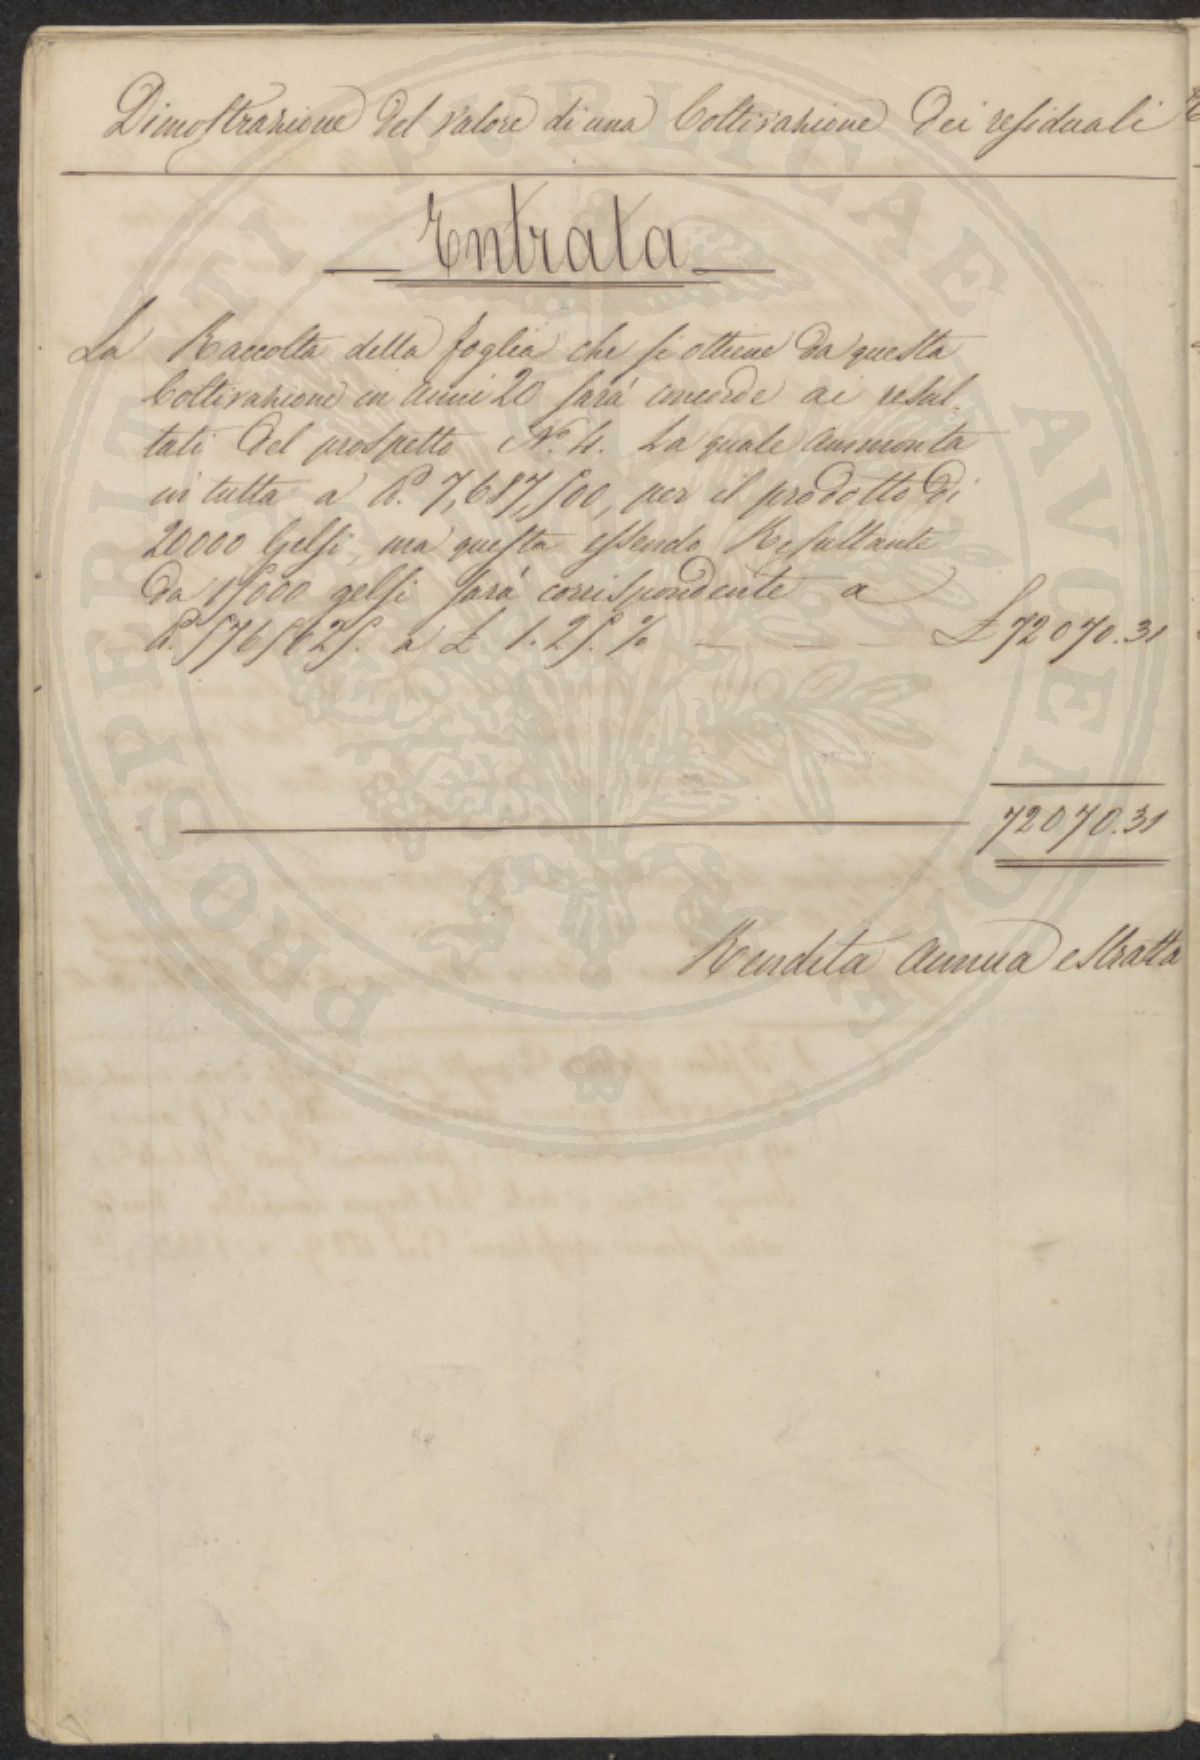 Dimostrazione del valore di una Coltivazione dei residuali
Entrata
La Raccolta della foglia che si ottiene da questa
Coltivazione in anni 20 sará concorde ai resul-
tati del prospetto N.o 4. La quale ammonta
in tutta a P. 7,687,500, per il prodotto di
20000 Gelsi, ma questa essendo Resultante
da 15000 gelsi sará corrispondente a
P. 5765625. a £ 1.25. % £ 72070.31
72070.31
Rendita annua estratta
PROSPERITATI PVBLICAE AVGENDAE